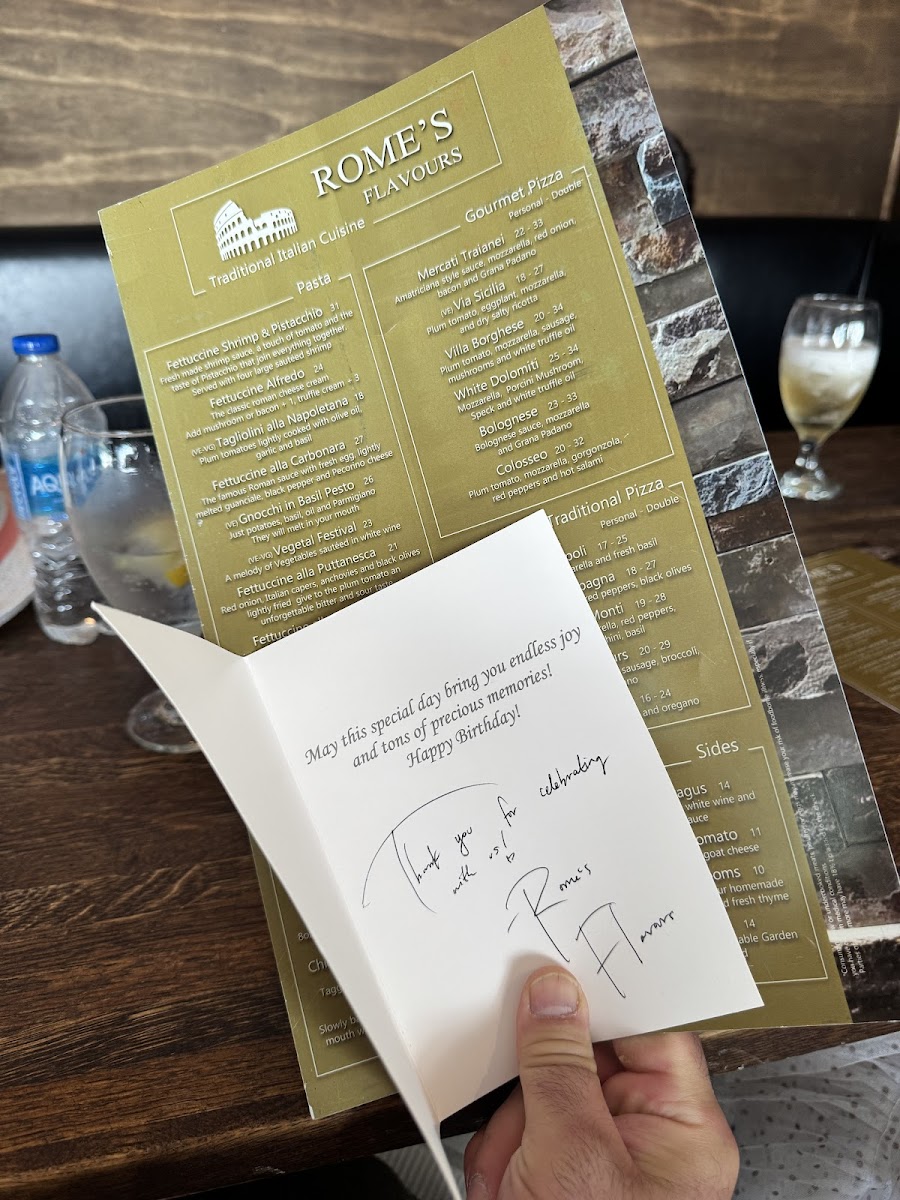 ROME'S
FLAVOURS
Traditional Italian Cuisine
Pasta
Fettuccine Shrimp & Pistacchio 31
Fresh made shrimp sauce, a touch of tomato and the
taste of Pistacchio that join everything together.
Served with four large sauteed shrimp
Fettuccine Alfredo 24
The classic roman cheese cream
Add mushroom or bacon + 1, truffle cream + 3
(VE-VG) Tagliolini alla Napoletana 18
Plum tomatoes lightly cooked with olive oil,
garlic and basil
Fettuccine alla Carbonara 27
The famous Roman sauce with fresh egg, lightly
melted guanciale, black pepper and Pecorino cheese
(VE) Gnocchi in Basil Pesto 26
Just potatoes, basil, oil and Parmigiano
They will melt in your mouth
(VE-VG) Vegetal Festival 23
A melody of Vegetables sautéed in white wine
Fettuccine alla Puttanesca 21
Red onion, Italian capers, anchovies and black olives
lightly fried give to the plum tomato an
unforgettable bitter and sour taste
Gourmet Pizza
Personal - Double
Mercati Traianei 22 - 33
Amatriciana style sauce, mozzarella, red onion,
bacon and Grana Padano
(VE) Via Sicilia 18 - 27
Plum tomato, eggplant, mozzarella,
and dry salty ricotta
Villa Borghese 20 - 34
Plum tomato, mozzarella, sausage,
mushrooms and white truffle oil
White Dolomiti 25 - 34
Mozzarella, Porcini Mushroom,
Speck and white truffle oil
Bolognese 23 - 33
Bolognese sauce, mozzarella
and Grana Padano
Colosseo 20 - 32
Plum tomato, mozzarella, gorgonzola,
red peppers and hot salami
Traditional Pizza
Personal - Double
17 - 25
and fresh basil
18 - 27
red peppers, black olives
Monti 19 - 28
red peppers,
basil
20 - 29
sausage, broccoli,
16 - 24
and oregano
Sides
14
white wine and
11
goat cheese
10
homemade
fresh thyme
14
Garden
May this special day bring you endless joy
and tons of precious memories!
Happy Birthday!
Thank you for celebrating
with us!
Rome's
Flavours